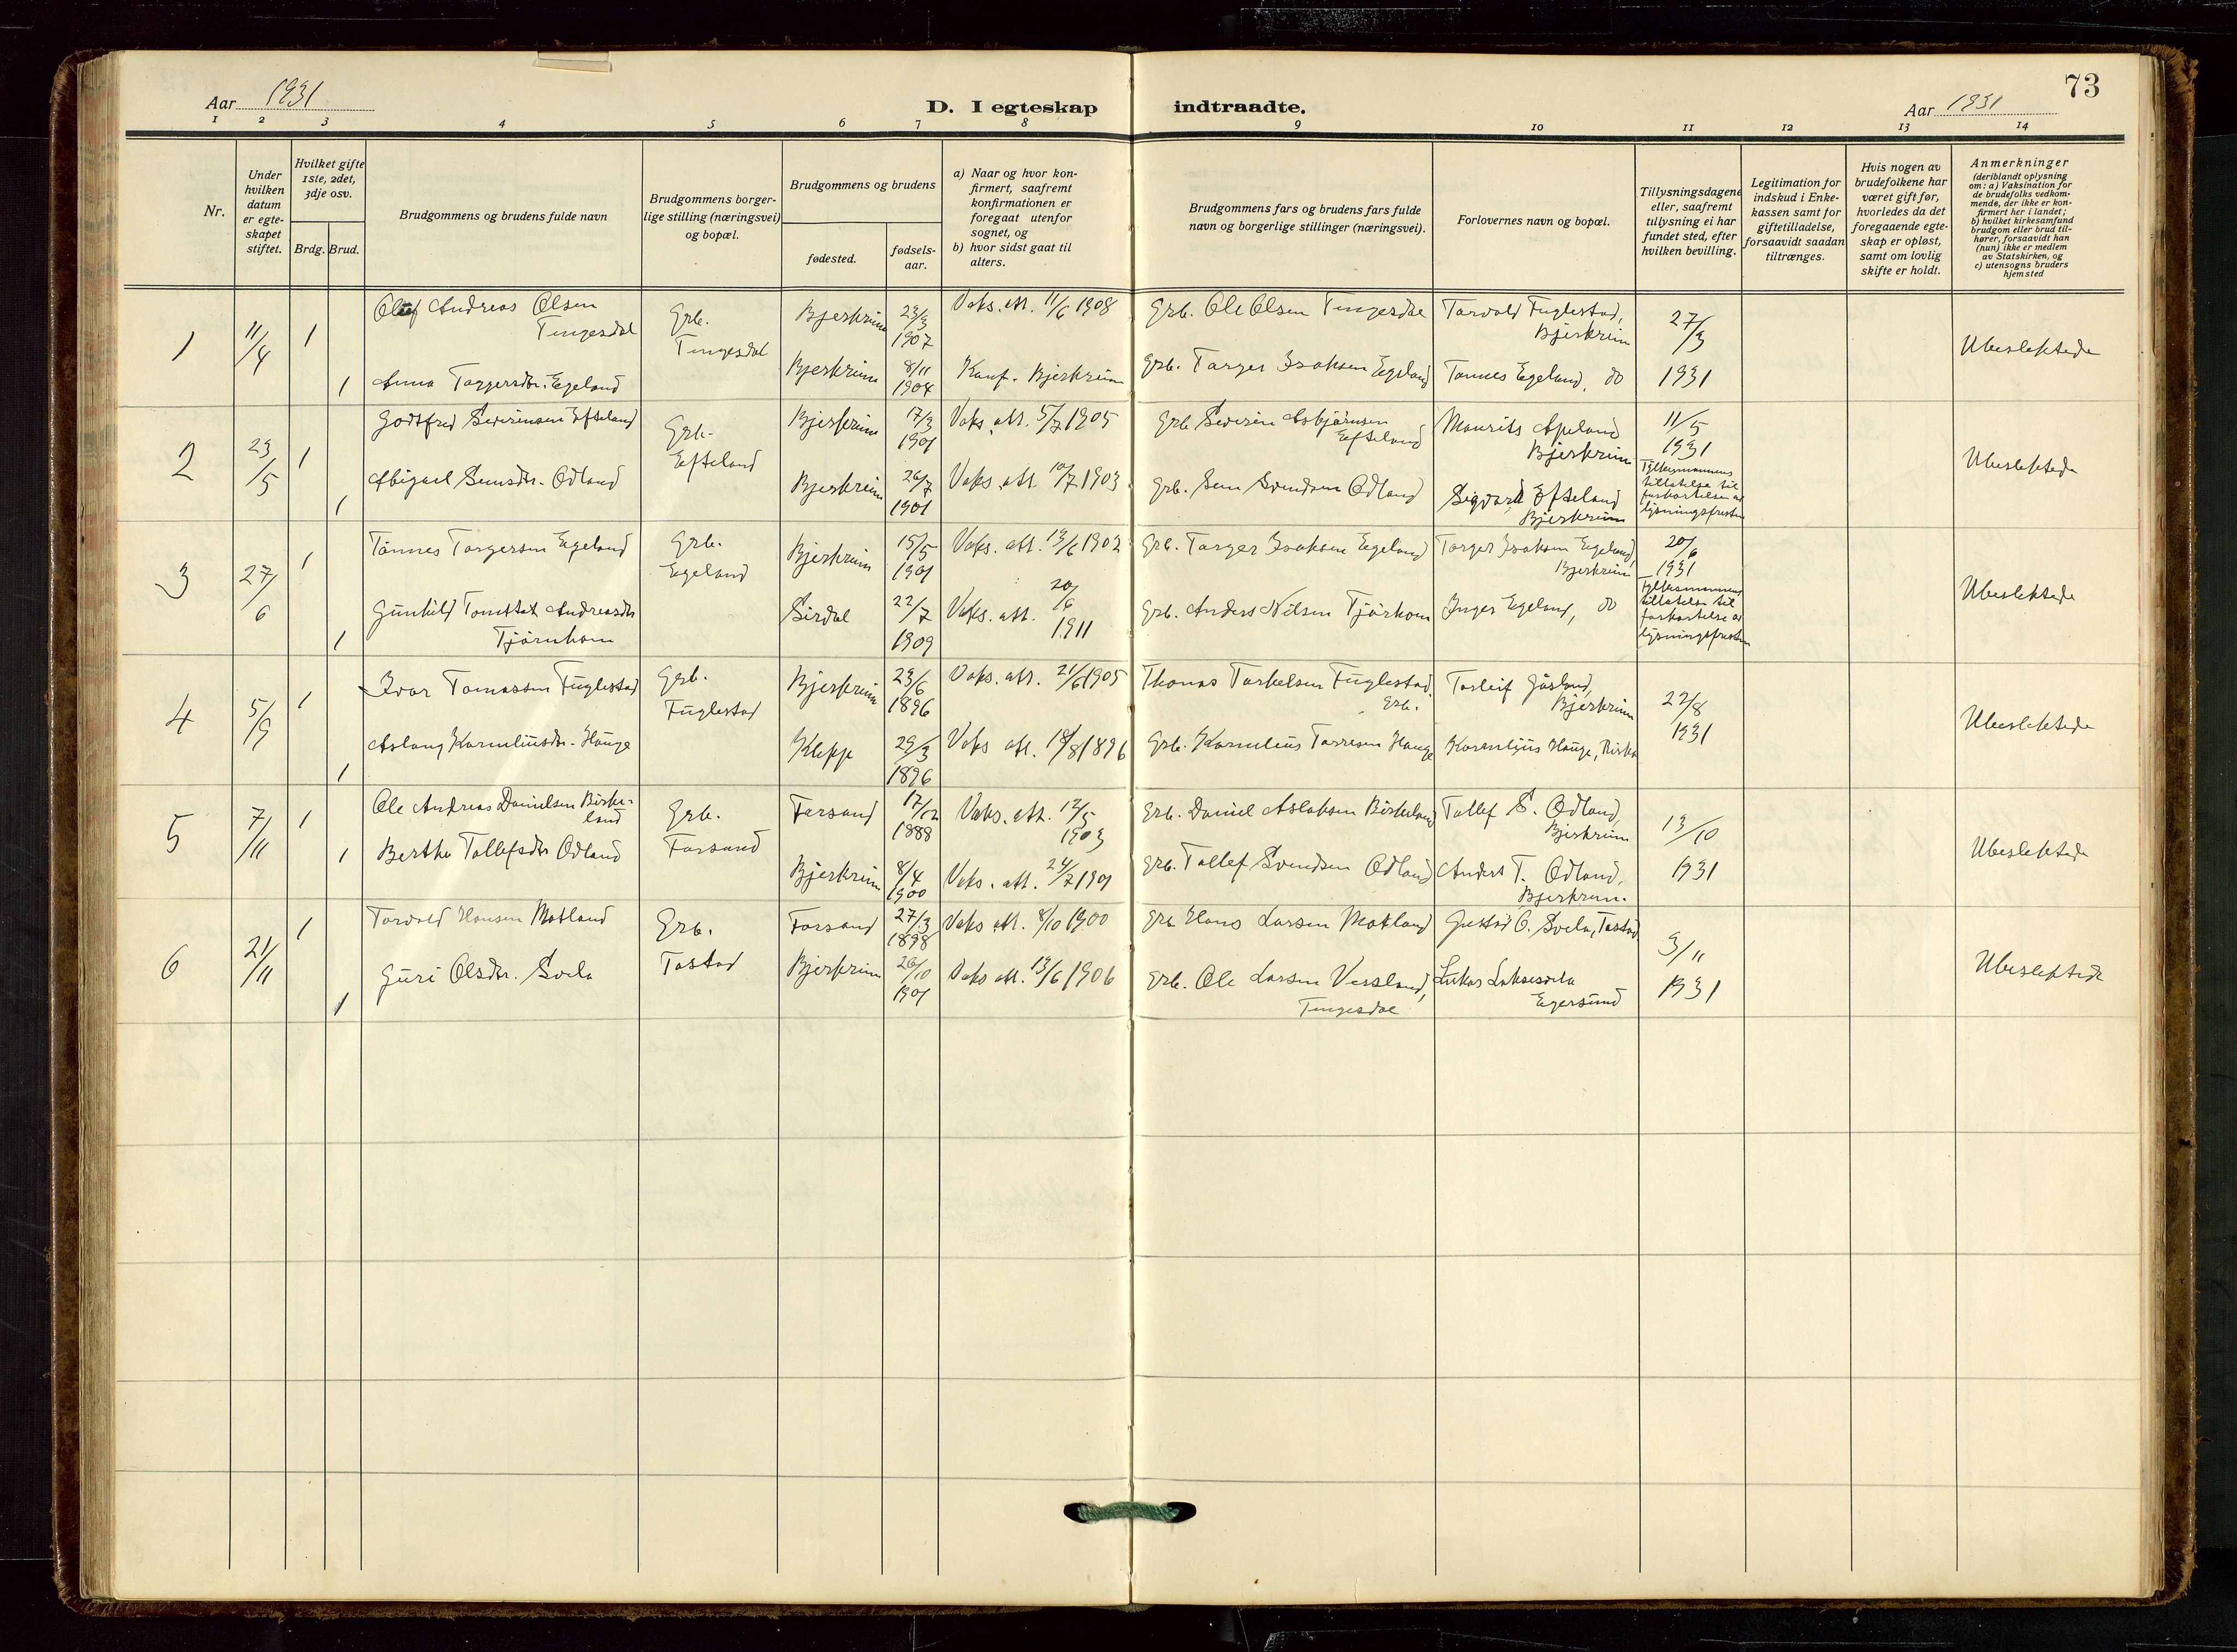 73
Aar 1931
D. I egteskap indtraadte.
Aar 1931
1 2 3 4 5 6 7 8 9 10 11 12 13 14
Nr.
Under
hvilken
datum
er egte-
skapet
stiftet.
Hvilket gifte
1ste, 2det,
3dje osv.
Brdg. Brud.
Brudgommens og brudens fulde navn
Brudgommens borger-
lige stilling (næringsvei)
og bopæl.
Brudgommens og brudens
fødested.
fødsels-
aar.
a) Naar og hvor kon-
firmert, saafremt
konfirmationen er
foregaat utenfor
sognet, og
b) hvor sidst gaat til
alters.
Brudgommens fars og brudens fars fulde
navn og borgerlige stillinger (næringsvei).
Forlovernes navn og bopæl.
Tillysningsdagene
eller, saafremt
tillysning ei har
fundet sted, efter
hvilken bevilling.
Legitimation for
indskud i Enke-
kassen samt for
giftetilladelse,
forsaavidt saadan
tiltrænges.
Hvis nogen av
brudefolkene har
været gift før,
hvorledes da det
foregaaende egte-
skap er opløst,
samt om lovlig
skifte er holdt.
Anmerkninger
(deriblandt oplysning
om: a) Vaksination for
de brudefolks vedkom-
mende, der ikke er kon-
firmert her i landet;
b) hvilket kirkesamfund
brudgom eller brud til-
hører, forsaavidt han
(hun) ikke er medlem
av Statskirken, og
c) utensogns bruders
hjemsted
1
11/4
1
Olaf Andreas Olsen
Tengesdal
Grb.
Tengesdal
Bjerkreim
23/3
1907
Vaks. att. 11/6 1908
Grb. Ole Olsen Tengesdal
Torvald Fuglestad,
Bjerkreim
27/3
1931
Ubeslektede
1
Anna Torgersdtr. Egeland
Bjerkreim
8/11
1904
Konf. Bjerkreim
Grb. Torger Isaksen Egeland
Tønnes Egeland, do
2
23/5
1
Godtfred Severinsen Efteland
Grb.
Efteland
Bjerkreim
17/3
1901
Vaks. att. 5/7 1905
Grb. Severin Asbjørnsen
Efteland
Maurits Apeland
Bjerkreim
11/5
1931
Fylkesmannens
tillatelse til
forkortelse av
lysningsfristen
Ubeslektede
1
Abigael Semsdtr. Odland
Bjerkreim
26/7
1901
Vaks. att. 10/7 1903
Grb. Sem Svendsen Odland
Sigvard Efteland
Bjerkreim
3
27/6
1
Tønnes Torgersen Egeland
Grb.
Egeland
Bjerkreim
15/5
1901
Vaks. att. 13/6 1902
Grb. Torger Isaksen Egeland
Torger Isaksen Egeland,
Bjerkreim
20/6
1931
Fylkesmannens
tillatelse til
forkortelse av
lysningsfristen
Ubeslektede
1
Gunhild Andreasdtr
Tjørnhom
Sirdal
22/7
1909
Vaks. att. 20/6
1911
Grb. Anders Nilsen Tjørhom
Inger Egeland, do
4
5/9
1
Ivar Tomassen Fuglestad
Grb.
Fuglestad
Bjerkreim
23/6
1896
Vaks. att. 21/6 1905
Thomas Torkelsen Fuglestad
Grb.
Torleif Gåsland,
Bjerkreim
22/8
1931
Ubeslektede
1
Aslaug Korneliusdtr. Hauge
Klepp
29/3
1896
Vaks. att. 18/8 1896
Grb. Kornelius Torresen Hauge
Kornelius Hauge,
5
7/11
1
Ole Andreas Danielsen Birke-
land
Grb.
Forsand
Forsand
17/12
1888
Vaks. att. 12/5
1903
Grb. Daniel Aslaksen Birkeland
Tollef S. Odland,
Bjerkreim
13/10
1931
Ubeslektede
1
Berthe Tollefsdtr Odland
Bjerkreim
8/4
1900
Vaks. att. 24/7 1901
Grb. Tollef Svendsen Odland
Anders T. Odland,
Bjerkreim.
6
21/11
1
Torvald Hansen Motland
Grb.
Tastad
Forsand
27/3
1898
Vaks att. 8/10 1900
Grb. Hans Larsen Motland
Gustav O. Svela, Tastad
3/11
1931
Ubeslektede
1
Guri Olsdtr. Svela
Bjerkreim
26/10
1901
Vaks att. 13/6 1906
Grb. Ole Larsen Versland,
Tengesdal
Lukas Laksesvela
Egersund